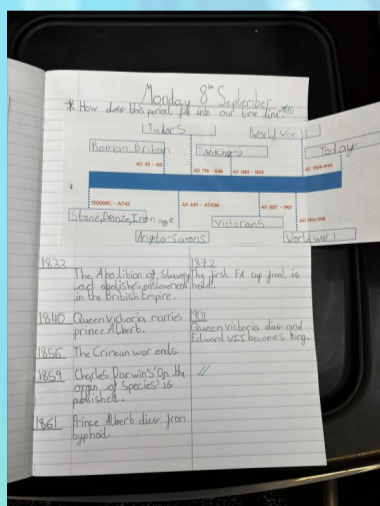 Monday 8th September
* How does this period fit into our time line?
Tudors
World War
Roman Britain
Vikings
Today
AD 43 - 410
AD 1485 - 1603
AD 1939-1945
150000BC - AD43
AD 449 - AD1066
AD 1837 - 1901
AD 1914-1918
Stone, Bronze, Iron age
Victorians
Anglo-Saxons
World war 1
1833
The Abolition of Slavery
act abolishes enslavement
in the British Empire.
1840 Queen Victoria marries
prince Albert.
1856 The Crimean war ends.
1859 Charles Darwin's 'On the
orgin of Species' is
published.
1861 Prince Albert dies from
typhoid.
1872
The first FA cup final is
held.
1901
Queen Victoria dies and
Edward VII becomes king.